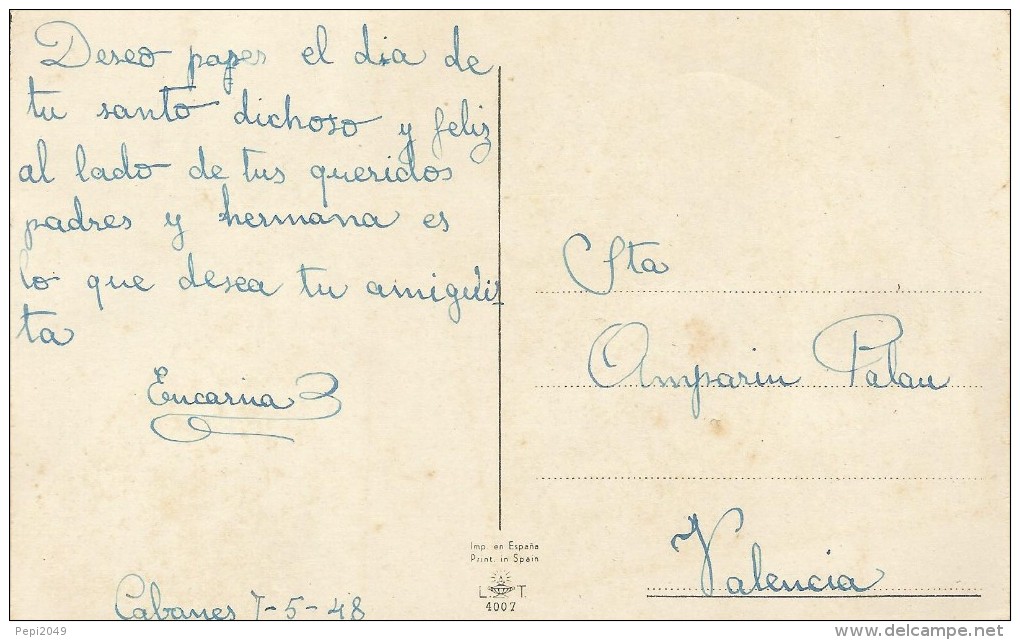 Deseo pases el dia de
tu santo dichoso y feliz
al lado de tus queridos
padres y hermana es
lo que desea tu amigüi-
ta
Encarna
Cabanes 7-5-48
Imp. en España
Print. in Spain
L. T.
4007
Sta
Amparin Palau
Valencia
Pepi2049
www.delcampe.net